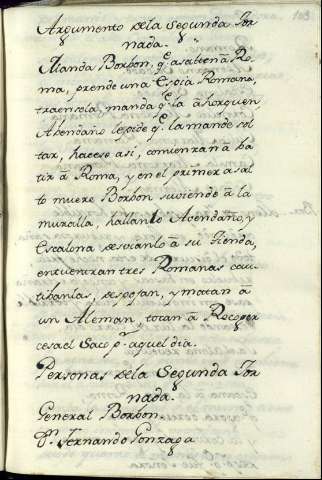 103
Argumento dela Segunda Jor
nada.
Manda Borbon, q̃ asalten â Ro
ma, prende una Espia Romana,
traensela manda q̃ la âhorquen
Abendaño lepide q̃ la mande sol
tar, hacese asi, comienzan â ba
tir â Roma, y en el primer asal
to muere Borbon suviendo â la
muralla, hallanlo Avendaño, y
Escalona â su tienda,
encuentran tres Romanas cau
tibanlas, despojan, y matan â
un Aleman, tocan â Recoger
cesa el Saco p.r aquel dia.
Personas dela Segunda Jor
nada.
General Borbon.
D.n Fernando Gonzaga